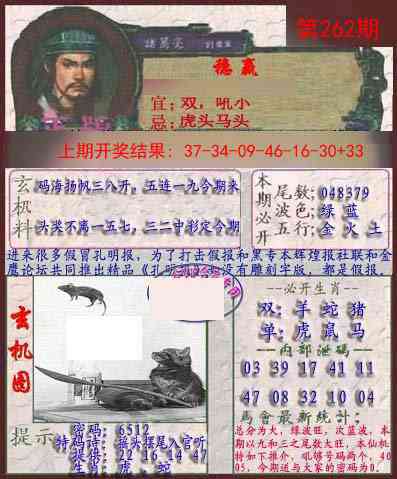 第262期
諸葛亮
稳赢
宜:双,吼小
忌:虎头马头
上期开奖结果:37-34-09-46-16-30+33
玄机料
码海扬帆三八开,五连一九今期来
头奖不离一五七,三二中彩定今期
本期必开
尾数:048379
波色:绿 蓝
五行:金 火 土
进来很多假冒孔明报,为了打击假报和黑专本辉煌报社联和金
鹰论坛共同推出精品《孔明报》没有雕刻字版,都是假报。
玄机图
必开生肖
双:羊 蛇 猪
单:虎 鼠 马
内部泄码
03 39 17 41 11
47 08 32 10 04
馬會最新統計:
总分为大,绿波旺,次蓝波,本
期以九和三之尾数大旺,本仙机
特如下推介,吼够号码两个,40
05,今期送与大家的密码为0.
提示
密码:6512
特码诗:摇头摆尾入官听
提供:22 16 14 47
生肖:虎、蛇